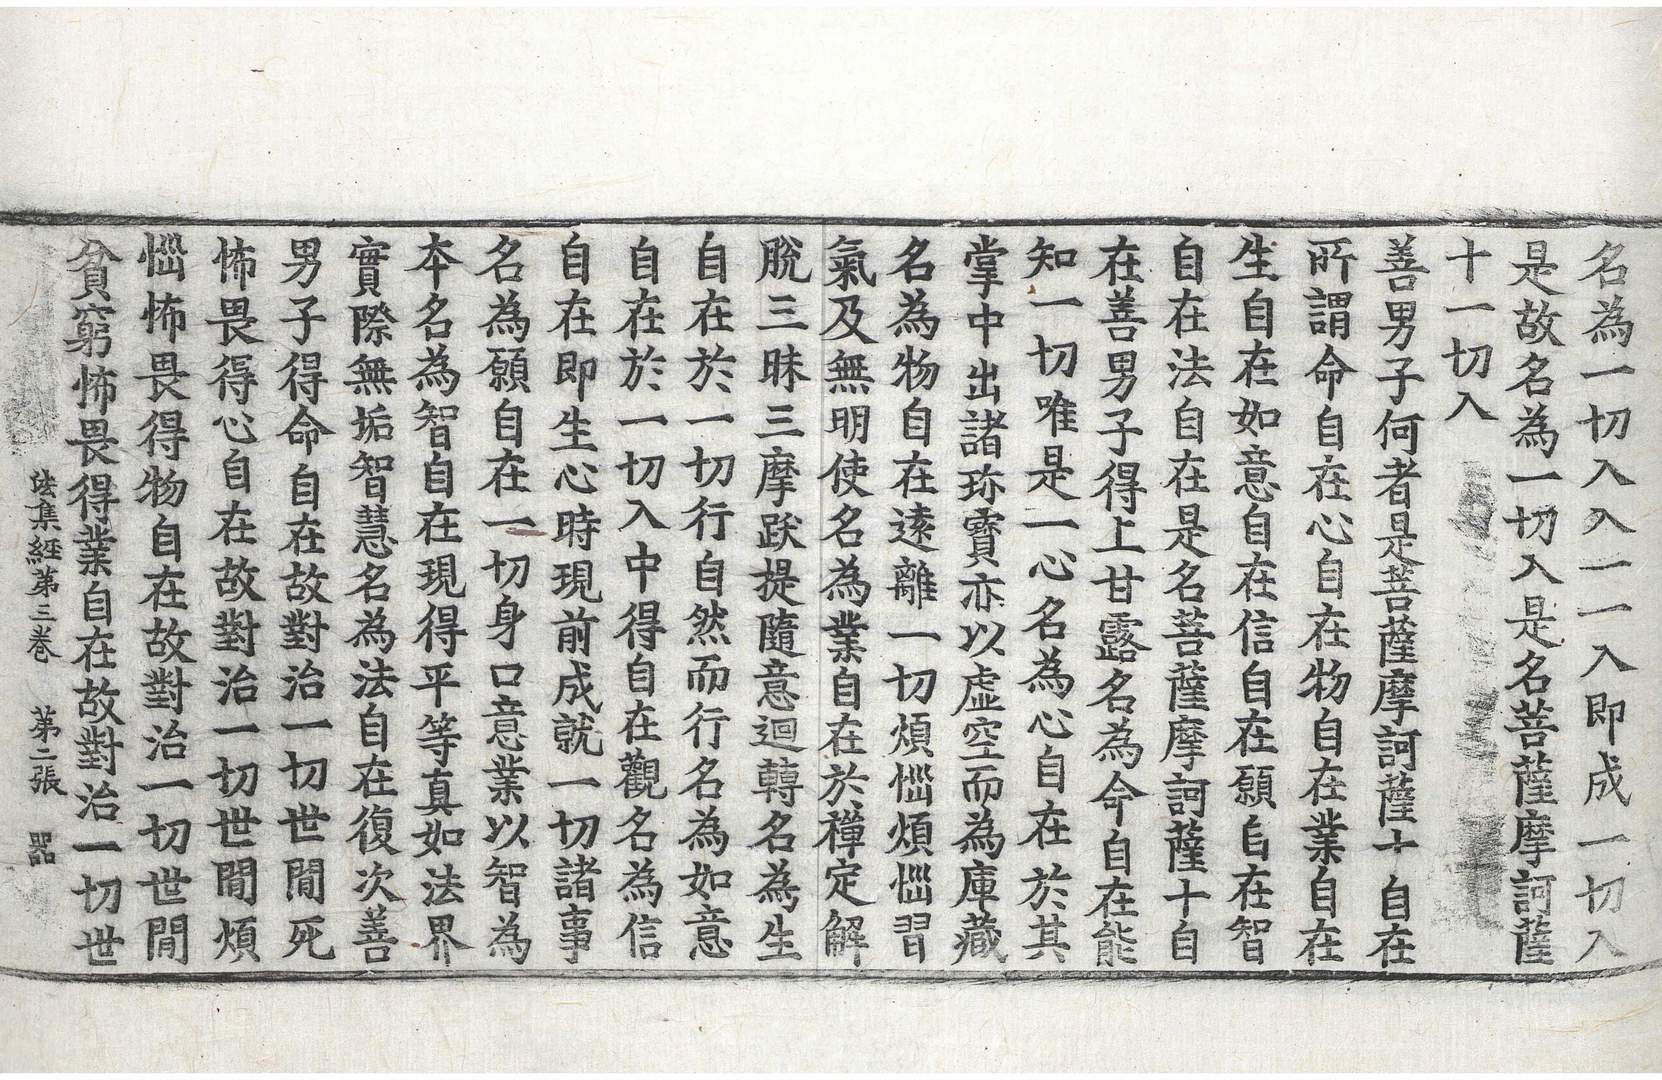 名為一切入入一一入即成一切入
是故名為一切入是名菩薩摩訶薩
十一切入
善男子何者是菩薩摩訶薩十自在
所謂命自在心自在物自在業自在
生自在如意自在信自在願自在智
自在法自在是名菩薩摩訶薩十自
在善男子得上甘露名為命自在能
知一切唯是一心名為心自在於其
掌中出諸珎寶亦以虛空而為庫藏
名為物自在遠離一切煩惱煩惱習
氣及無明使名為業自在於禪定解
脫三昧三摩跋提隨意迴轉名為生
自在於一切行自然而行名為如意
自在於一切入中得自在觀名為信
自在即生心時現前成就一切諸事
名為願自在一切身口意業以智為
本名為智自在現得平等真如法界
實際無垢智慧名為法自在復次善
男子得命自在故對治一切世間死
怖畏得心自在故對治一切世間煩
惱怖畏得物自在故對治一切世間
貧窮怖畏得業自在故對治一切世
法集經第三卷 第二張 器